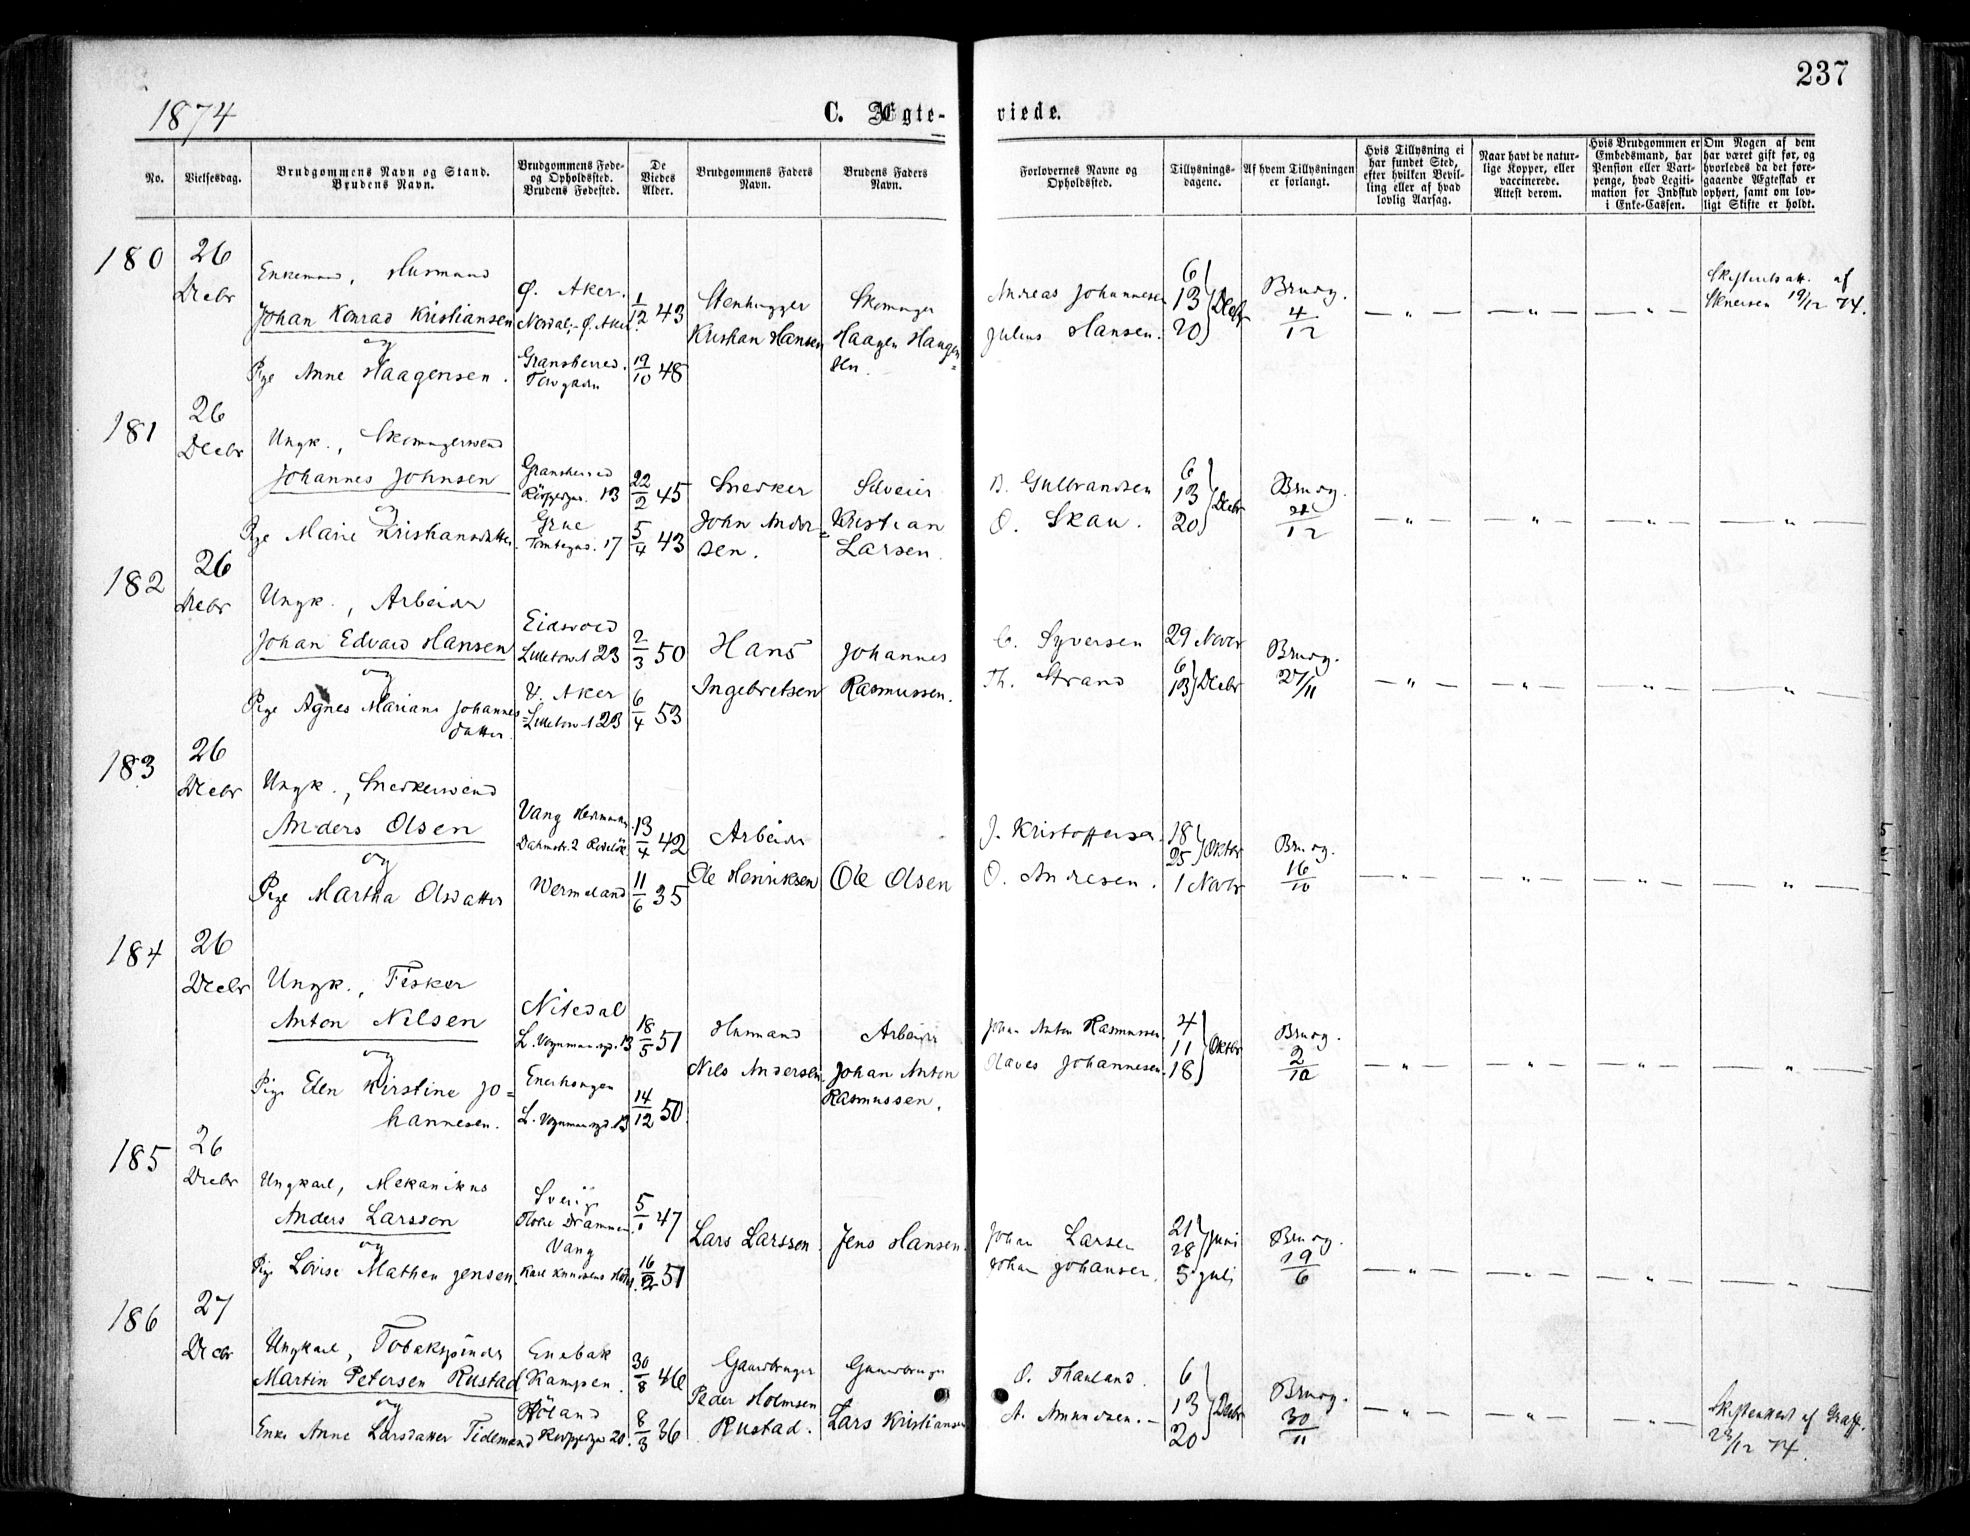 237
1874
C. Ægte-
viede.
No.
Vielsesdag.
Brudgommens Navn og Stand.
Brudens Navn.
Brudgommens Føde-
og Opholdssted.
Brudens Fødested.
De
Viedes
Alder.
Brudgommens Faders
Navn.
Brudens Faders
Navn.
Forlovernes Navne og
Opholdssted.
Tillysnings-
dagene.
Af hvem Tillysningen
er forlangt.
Hvis Tillysning ei
har fundet Sted,
efter hvilken Bevil-
ling eller af hvad
lovlig Aarsag.
Naar havt de natur-
lige Kopper, eller
vaccinerede.
Attest derom.
Hvis Brudgommen er
Embedsmand, har
Pension eller Vart-
penge, hvad Legiti-
mation for Indskud
i Enke-Cassen.
Om Nogen af dem
har været gift før, og
hvorledes da det fore-
gaaende Ægteskab er
ophørt, samt om lov-
ligt Skifte er holdt.
180
26
Decbr
Enkemand, Husmand
Johan Konrad Kristiansen
og
Pige Anne Haagensen.
Ø. Aker.
Ø. Aker.
Gransherred.
1/12 43
19/10 48
Stenhugger
Kristian Hansen
Skomager
Haagen Haagen
sen.
Andreas Johannesen
Julius Hansen.
6
13
20
Decbr
Brudg.
4/12
af
19/12 74.
181
26
Decbr
Ungk., Skomagersvend
Johannes Johnsen
og
Pige Marie Kristiansdatter
Gransherred
13
Grue
Tomtegd. 17
22/2 45
5/4 43
Snedker
John Ander=
sen.
Kristian
Larsen
B. Gulbrandsen
O. Skau.
6
13
20
Decbr
Brudg.
/12
182
26
Decbr
Ungk., Arbeider
Johan Edvard Hansen
og
Pige Agnes Mariane Johannes=
datter
Eidsvold
23
V. Aker
23
2/3 50
6/4 53
Hans
Ingebretsen
Johannes
Rasmussen.
C. Syversen
Th. Strand
29 Novbr
6
13
Decbr
Brudg.
27/11
183
26
Decbr
Ungk., Snedkersvend
Anders Olsen
og
Pige Martha Olsdatter
Vang Hedemarken
Wermeland
13/4 42
11/6 35
Arbeider
Ole Henriksen
Ole Olsen
J. Kristoffersen
O. Andresen.
18
25
Oktbr
1 Novbr
Brudg.
16/10
184
26
Decbr
Ungk., Fisker
Anton Nilsen
og
Pige Elen Kirstine Jo=
hannesen.
Nitedal
L. Vognmandsgd. 13
Enerhougen
L. Vognmandsgd. 13
18/5 51
14/12 50
Husmand
Nils Andersen
Arbeider
Johan Anton
Rasmussen.
Johan Anton Rasmussen
Johannesen
4
11
18
Oktbr
Brudg.
2/10
185
26
Decbr
Ungkarl, Mekanikus
Anders Larsson
og
Pige Lovise Mathea Jensen
Sverig
Drammen
Vang
5/1 47
16/12 51
Lars Larsson.
Jens Hansen.
Johan Larsen
Johan Johansen.
21
28
Juni
5 Juli
Brudg.
19/6
186
27
Decbr
Ungkarl, Tobakspinder
Martin Petersen Rustad
og
Enke Anne Larsdatter Tidemand
Enebak
Kampen.
Høland
20.
30/8 46
8/3 36
Gaardbruger
Peder Holmsen
Rustad.
Gaardbruger
Lars Kristiansen
O. Thanland.
A. Amundsen.
6
13
20
Decbr
Brudg.
30/11
Skifteattest af Graff.
23/12 74.